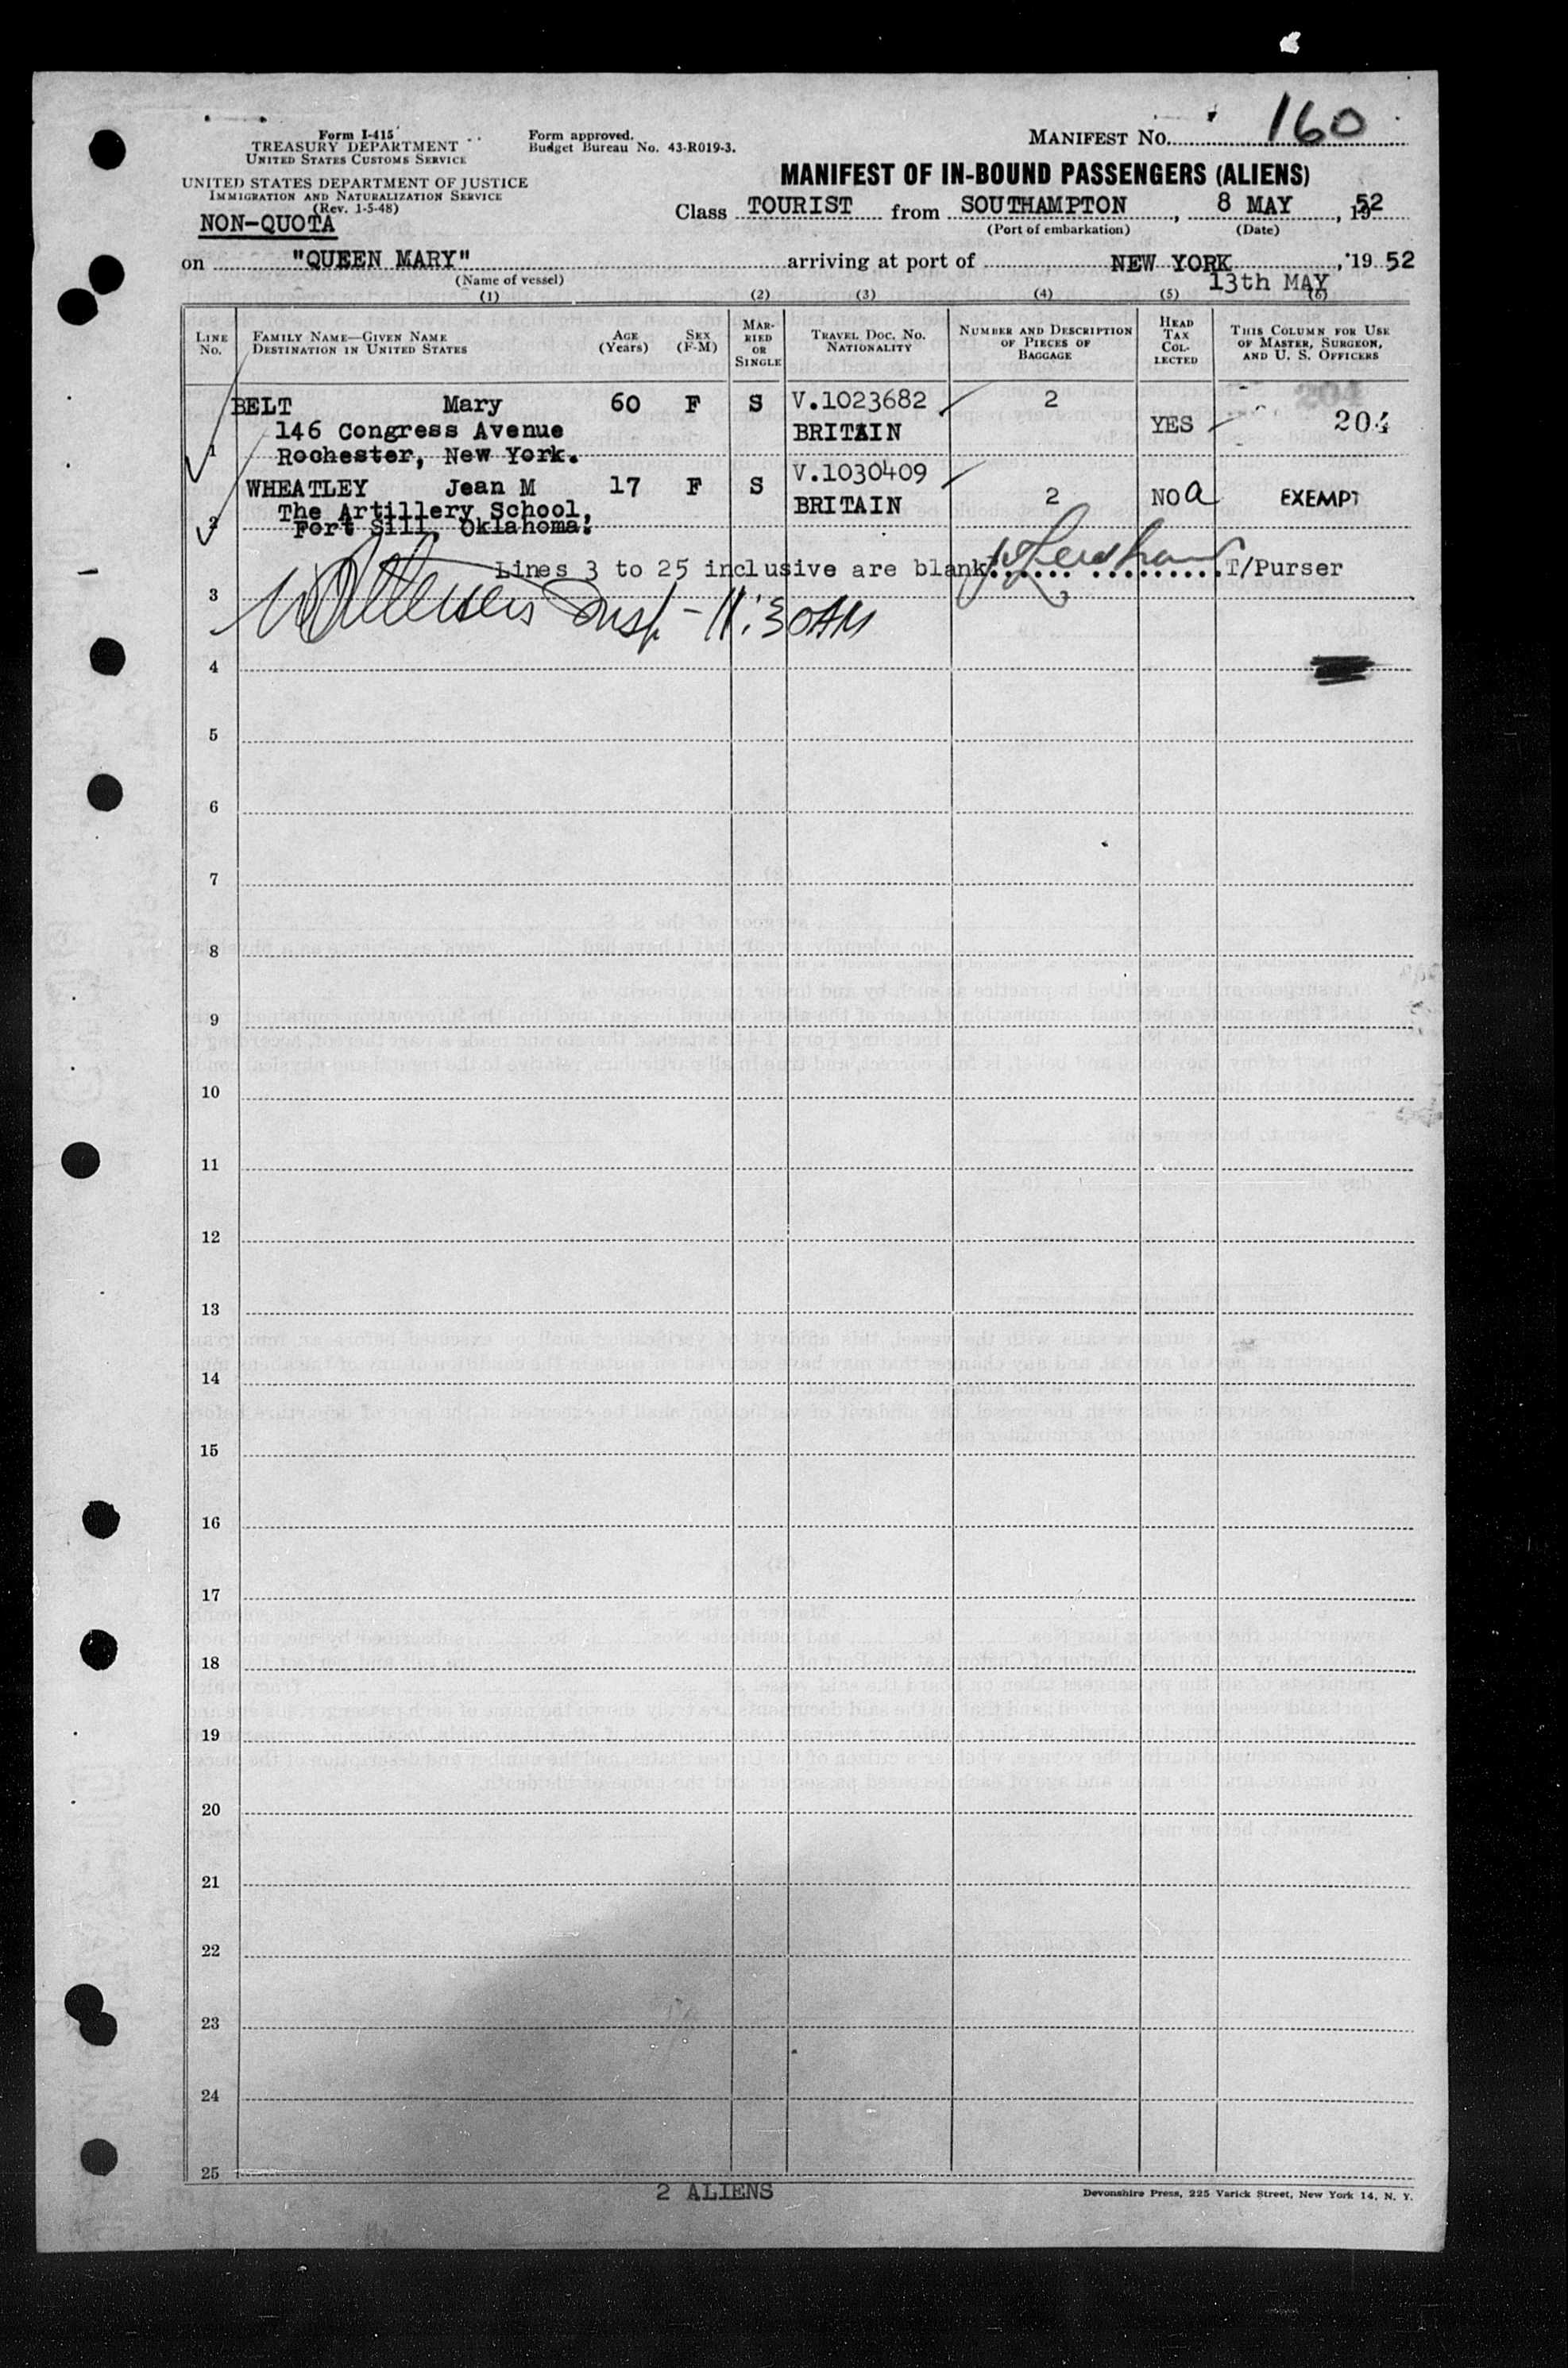 Form I-415
TREASURY DEPARTMENT
UNITED STATES CUSTOMS SERVICE
UNITED STATES DEPARTMENT OF JUSTICE
IMMIGRATION AND NATURALIZATION SERVICE
(Rev. 1-5-48)
NON-QUOTA
Form approved.
Budget Bureau No. 43-R019-3.
MANIFEST No. 160
MANIFEST OF IN-BOUND PASSENGERS (ALIENS)
Class TOURIST from SOUTHAMPTON, 8 MAY, 1952
(Port of embarkation) (Date)
on "QUEEN MARY" arriving at port of NEW YORK, 19 52
(Name of vessel) 13th MAY
(1) (2) (3) (4) (5) (6)
LINE No. FAMILY NAME—GIVEN NAME DESTINATION IN UNITED STATES AGE (Years) SEX (F-M) MARRIED OR SINGLE TRAVEL DOC. NO. NATIONALITY NUMBER AND DESCRIPTION OF PIECES OF BAGGAGE HEAD TAX COLLECTED THIS COLUMN FOR USE OF MASTER, SURGEON, AND U. S. OFFICERS
BELT Mary 60 F S V.1023682 2
146 Congress Avenue BRITAIN YES 204
1 Rochester, New York.
WHEATLEY Jean M 17 F S V.1030409
The Artillery School, BRITAIN 2 NO a EXEMPT
2 Fort Sill, Oklahoma.
Lines 3 to 25 inclusive are blank. T/Purser
3 Insp - 11:30AM
4
5
6
7
8
9
10
11
12
13
14
15
16
17
18
19
20
21
22
23
24
25
2 ALIENS
Devonshire Press, 225 Varick Street, New York 14, N. Y.